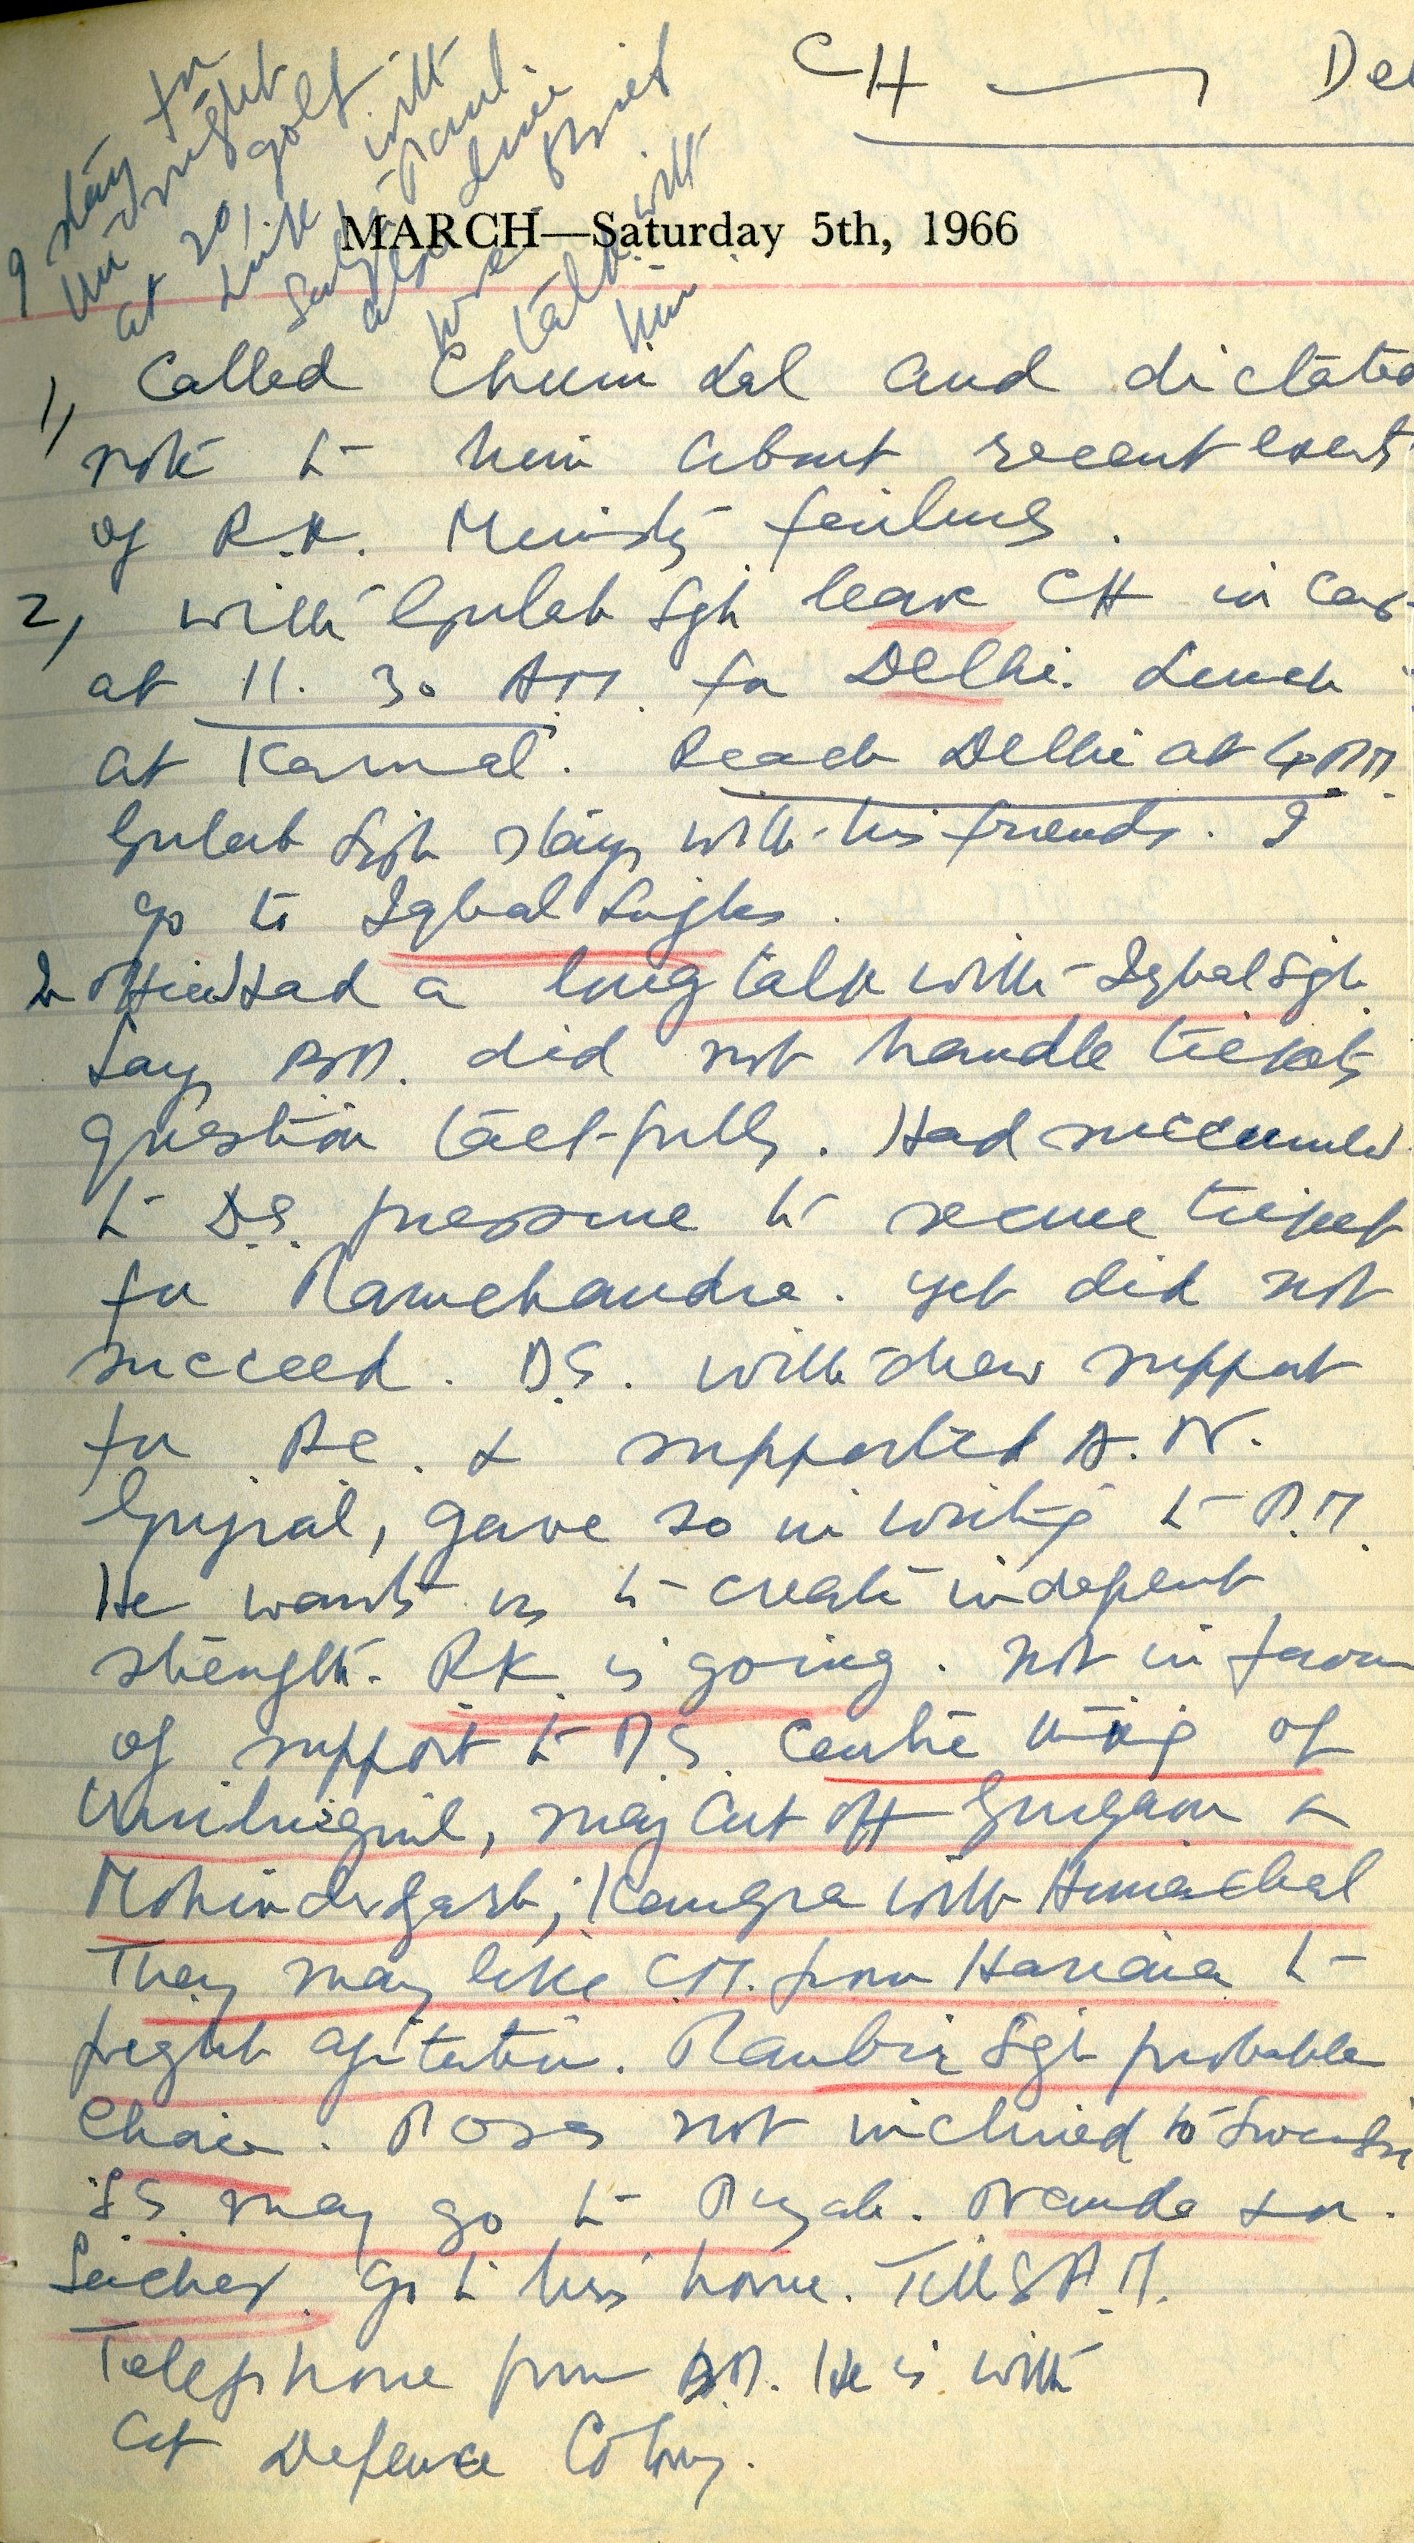 CH — Del
I stay for
the night
at 20, golf
Link with
also
talk with
him.
MARCH—Saturday 5th, 1966
1, Called Chuni Lal and dictated
note to him about recent events
of R.K. Ministry failures.
2, with Gulab Sgh leave CH in Car
at 11.30 AM for Delhi. Lunch
at Karnal. Reach Delhi at 4 PM.
Gulab Sigh stays with his friends. I
go to Iqbal Singhs.
Had a long talk with Iqbal Sgh
Says did not handle tickets
question tactfully. Had succumbed
to D.S. pressure to secure ticket
for Ramchandra. Yet did not
succeed. D.S. withdrew support
for R.C. & supported A.N.
Gujral, gave so in writing to P.M.
He wants us to create indepent
strength. RK is going. Not in favour
of support to D.S. Centre
may cut off Gurgaon &
Mohindergarh; Kangra with Himachal
They may like C.M. from Hariana to
fight agitation. Ranbir Sgh probable
Choice. not inclined to
may go to Punjab. Nanda
Sachar. Go to his home. Till 8 P.M.
Telephone from He is with
at Defence Colony.